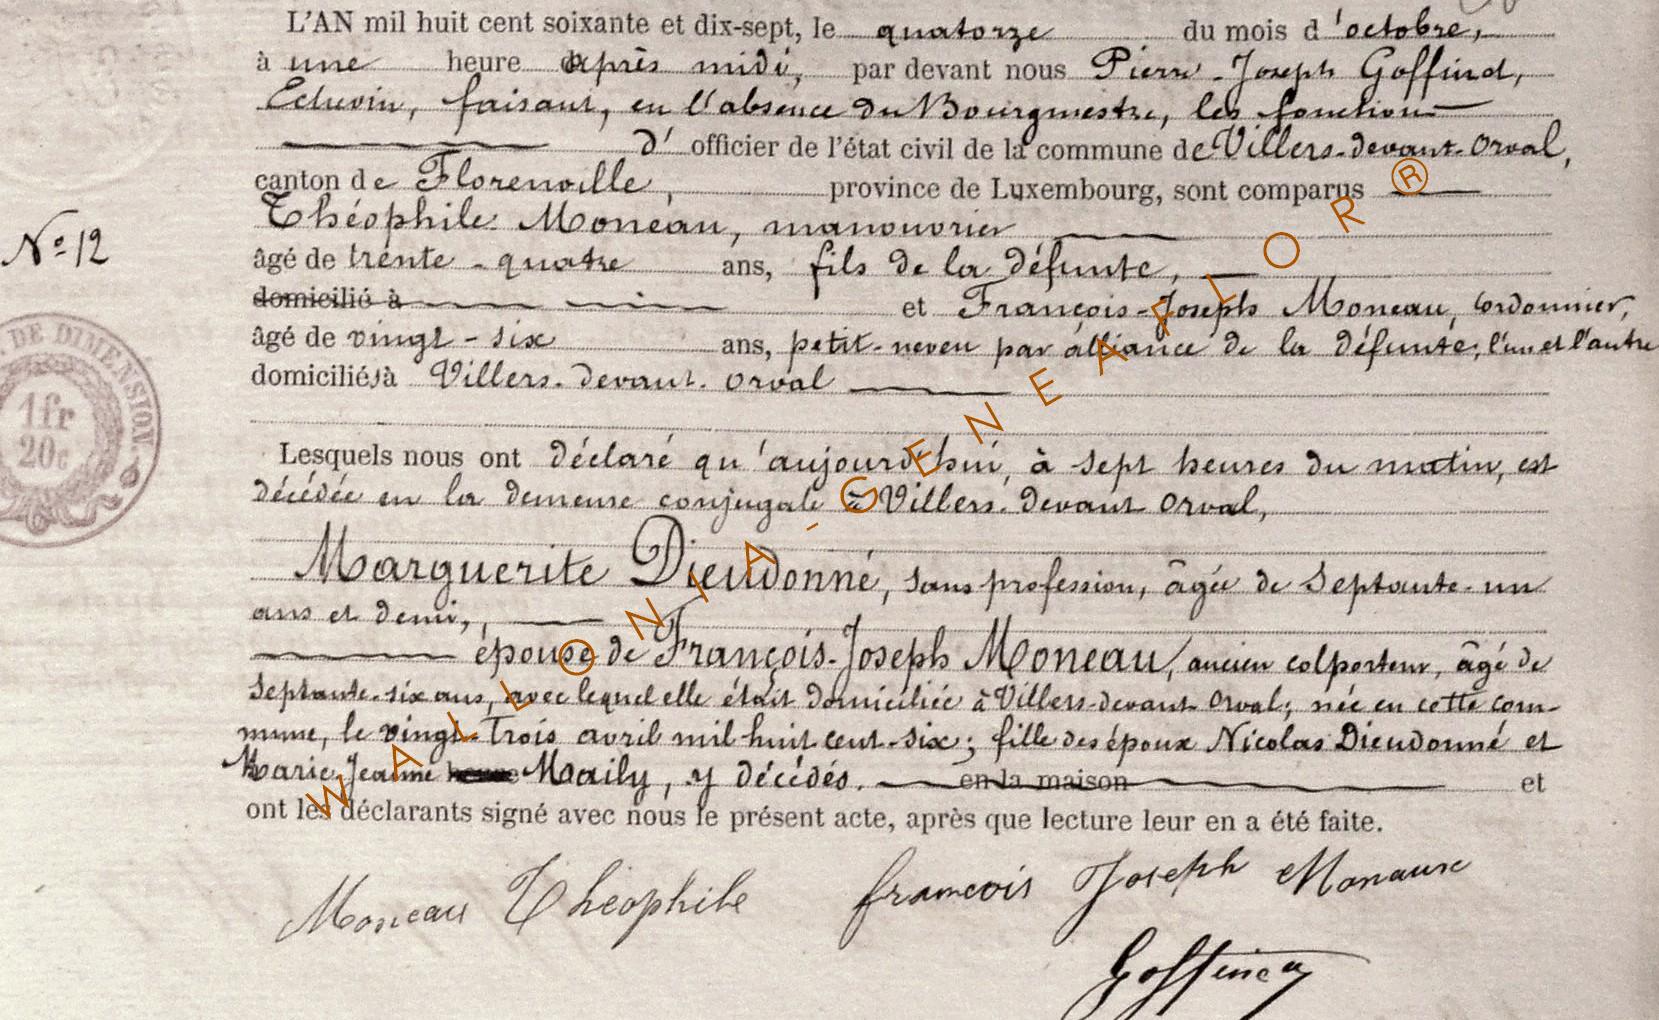 L'AN mil huit cent soixante et dix-sept, le quatorze du mois d'octobre,
à une heure après midi, par devant nous Pierre-Joseph Goffinet,
Echevin, faisant, en l'absence du Bourgmestre, les fonction
d' officier de l'état civil de la commune de Villers-devant-Orval,
canton de Florenville, province de Luxembourg, sont comparus
Théophile Moneau, manouvrier
N° 12
âgé de trente-quatre ans, fils de la défunte,
domicilié à et François-Joseph Moneau, cordonnier,
âgé de vingt-six ans, petit-neveu par alliance de la défunte; l'un et l'autre
domiciliés à Villers-devant-Orval
DE DIMENSION.
1fr
20c
Lesquels nous ont déclaré qu'aujourd'hui, à sept heures du matin, est
décédée en la demeure conjugale à Villers-devant Orval,
Marguerite Dieudonné, sans profession, âgée de septante-un
ans et demi,
épouse de François-Joseph Moneau, ancien colporteur, âgé de
septante-six ans, avec lequel elle était domiciliée à Villers-devant-Orval; née en cette com-
mune, le vingt-trois avril mil huit cent-six; fille des époux Nicolas Dieudonné et
Marie-Jeanne Maily, y décédés. en la maison et
ont les déclarants signé avec nous le présent acte, après que lecture leur en a été faite.
Moneau Théophile françois Joseph Monaux
Goffinet
WALLONIA-GENEAFLOR®